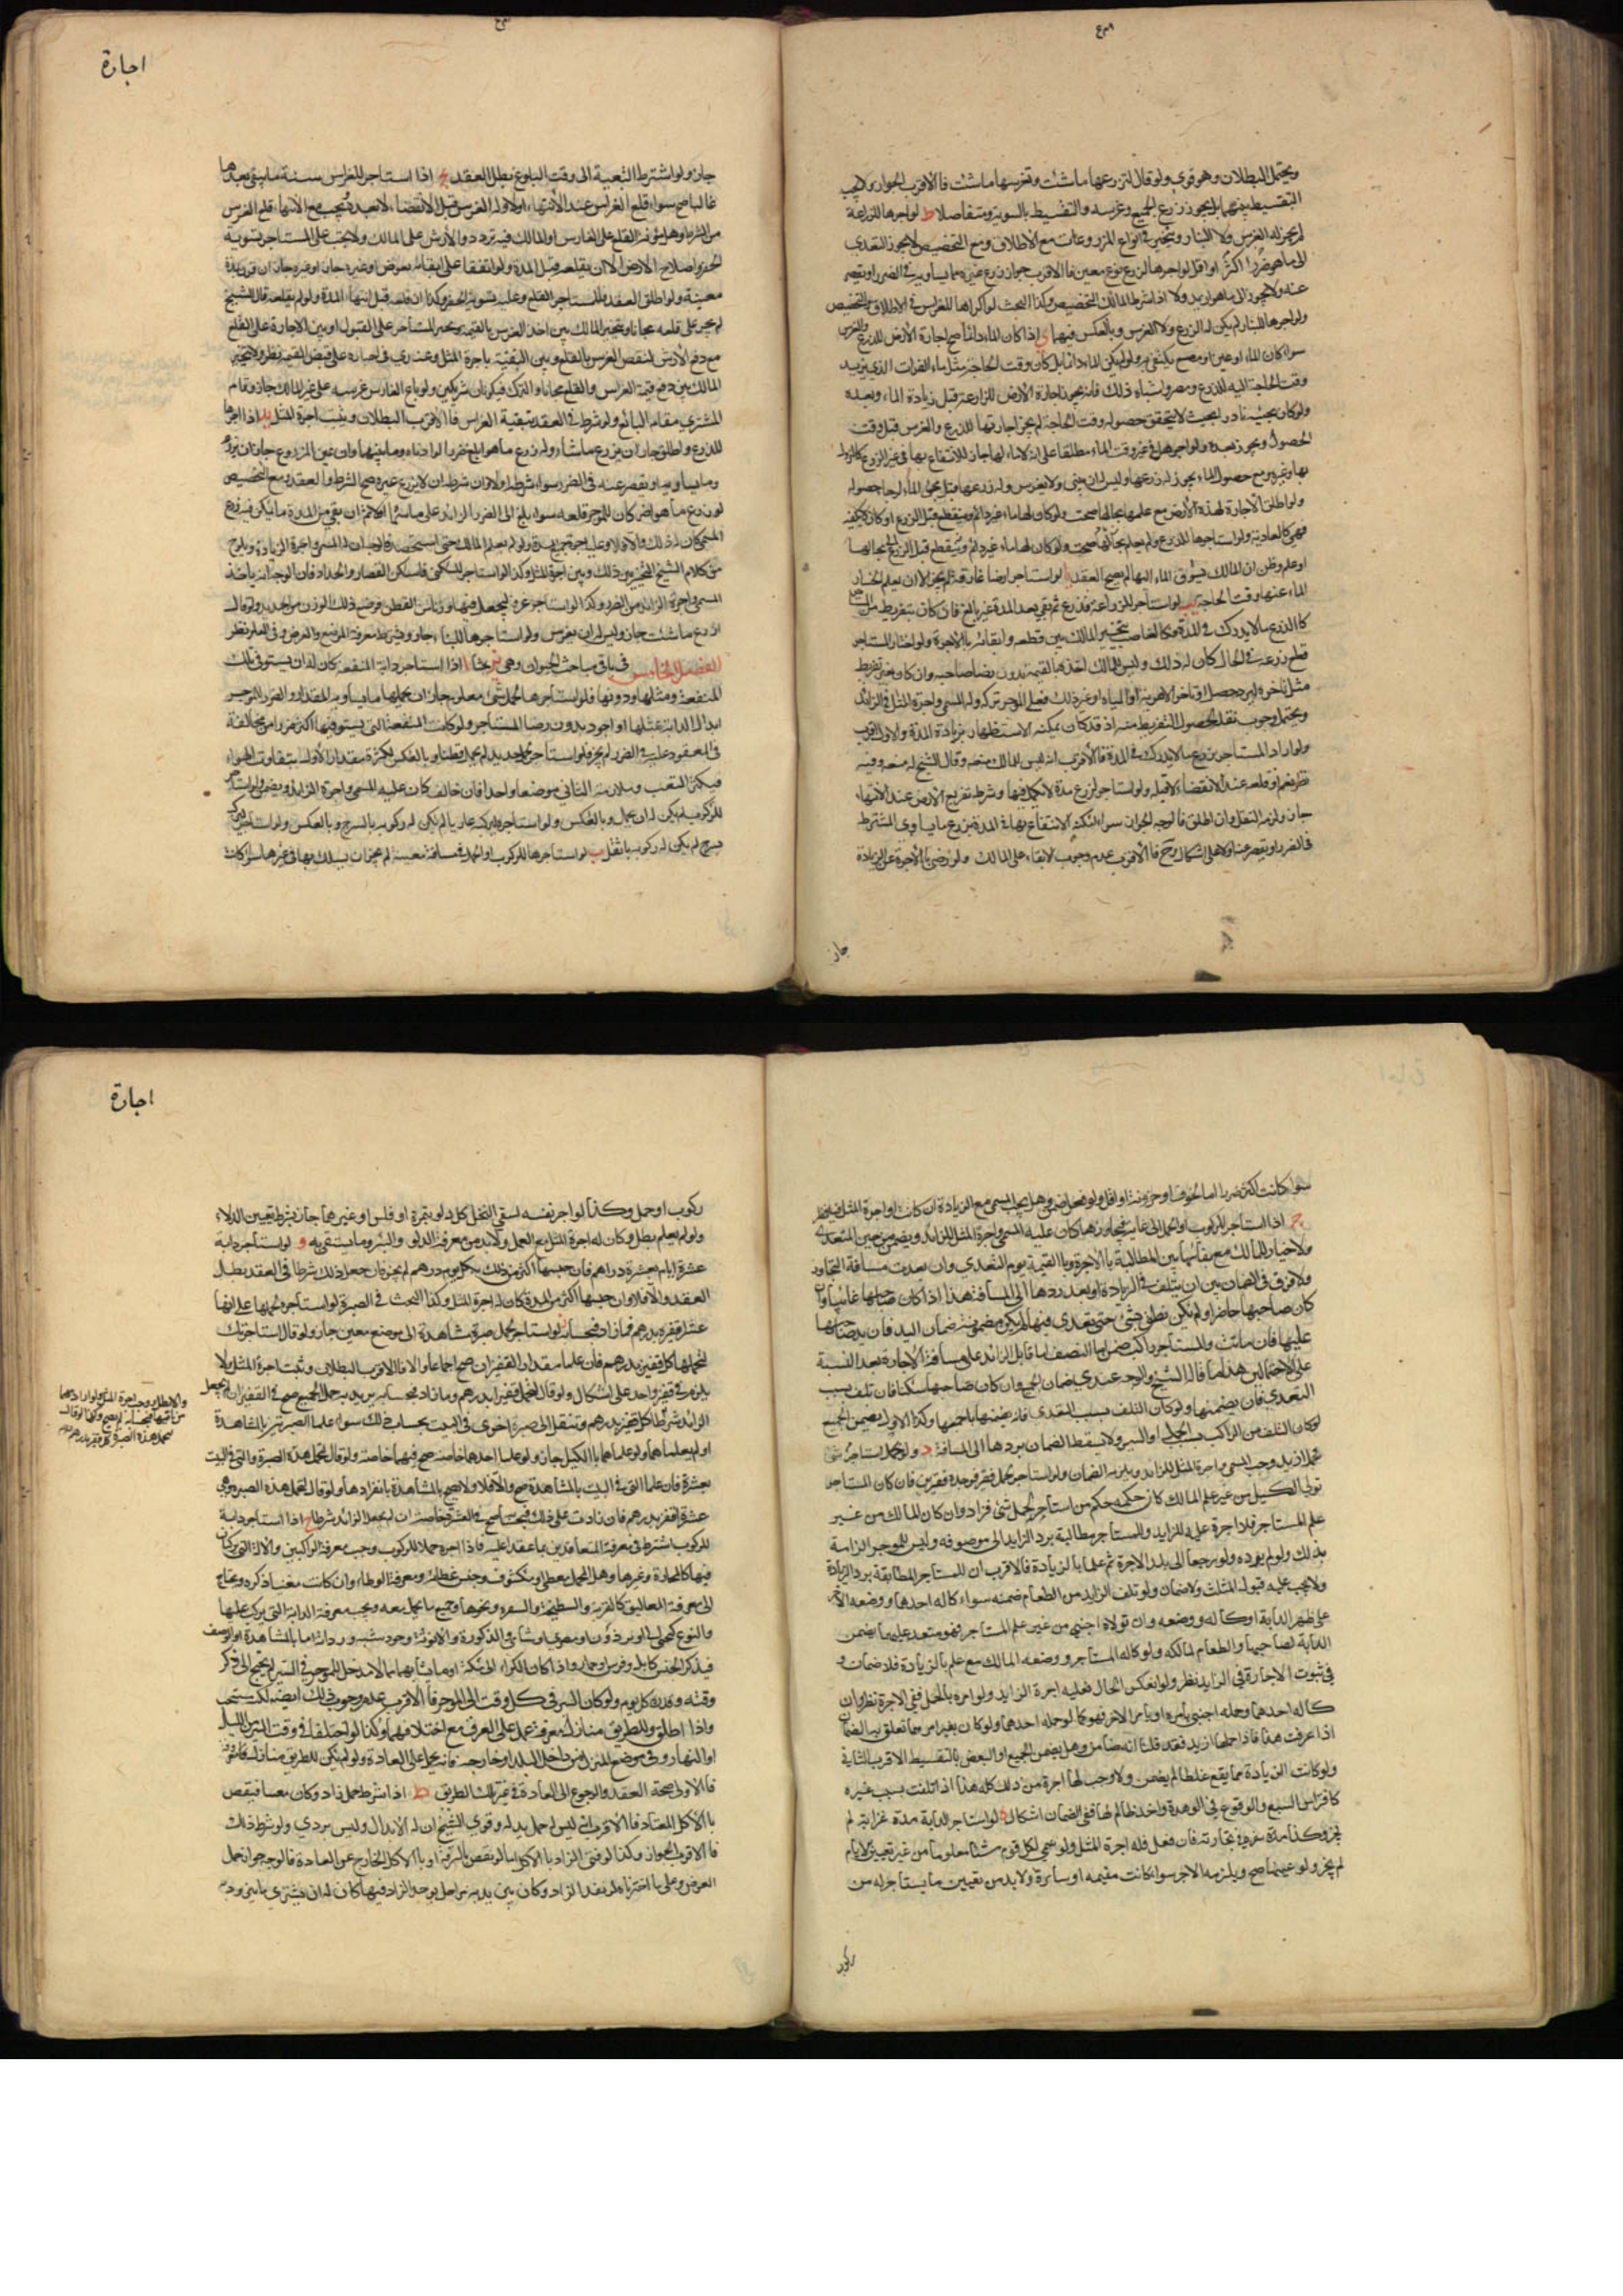 ويحتمل البطلان وهو قوي ولو قال لتزرعها ما شئت وتغرسها ما شئت فالاقرب الجواز ولا يجب
التقسيط بينهما بل يجوز زرع الجميع وغرسه والتقسيط بالسوية ومتفاضلا ط لو اجرها للزراعة
لم يجز له الغرس ولا البناء ويتخير في انواع المزروعات مع الاطلاق ومع التخصيص لا يجوز التعدي
الى ما هو ضررا اكثر او اقل لو اجرها لزرع نوع معين فالاقرب جواز زرع غيره مما يساويه في الضرر او يقصر
عنه ولا يجوز الى ما هو ازيد ولا اذا شرط المالك التخصيص وكذا البحث لو اكراها للغراس في الاطلاق والتخصيص
ولو اجرها للبناء لم يكن له الزرع ولا الغرس وبالعكس فيهما ى اذا كان الماء دائما صح اجارة الارض للزرع والغرس
سواء كان الماء او عين او مصنع يكتفى به ولو لم يكن الماء دائما بل كان وقت الحاجة مثل ماء الفرات الذي يزيد
وقت الحاجة اليه للزرع ومصر واشباه ذلك فانه يجوز اجارة الارض للزراعة قبل زيادة الماء وبعده
ولو كان مجيئه نادرا بحيث لا يتحقق حصوله وقت الحاجة لم يجز اجارتها للزرع والغرس قبل وقت
الحصول ويجوز بعده ولو اجرها في غير وقت الماء مطلقا على انه لا ماء لها جاز للانتفاع بها في غير الزرع
بها وغيره مع حصول الماء يجوز له زرعها وليس له ان يبني ولا يغرس وله زرعها قبل مجئ الماء لرجا حصوله
ولو اطلق الاجارة لهذه الارض مع علمها بحالها صحت ولو كان لها ماء غير دائم وينقطع قبل الزرع او كان لا يكفيه
فهي كالعادية ولو استاجرها للزرع ولم يعلم بحالها
او علم وظن ان المالك يسوق الماء اليها لم يصح العقد يا لو استاجر ارضا غارقة لم يجز الا ان يعلم انحسار
الماء عنها وقت الحاجة يب لو استاجر للزراعة فزرع ثم بقي بعد المدة غير بالغ فان كان بتفريط من المستاجر
كالزرع ما لا يدرك في المدة فكالغاصب يتخير المالك بين قطعه وابقائه بالاجرة ولو اختار المستاجر
قطع زرعه في الحال كان له ذلك وليس للمالك اخذها بالقيمة بدون رضا صاحبه وان كان بغير تفريط
مثل تاخره لبرد حصل او تاخر الاهوية او المياه او غير ذلك فعلى الموجر تركه وله المسمى واجرة المثل في الزائد
ويحتمل وجوب نقله لحصول التفريط منه اذ قد كان يمكنه الاستظهار في زيادة المدة والاول اقرب
ولو اراد المستاجر زرع ما لا يدرك في المدة فالاقرب انه ليس للمالك منعه وقال الشيخ له منعه وفيه
نظر نعم له قلعه عند الانقضاء لا قبله ولو استاجر لزرع مدة لا يكمل فيها وشرط تفريغ الارض عند الانتهاء
جاز ولزمه النقل وان اطلق فالوجه الجواز سواء امكنه الانتفاع بها في المدة بزرع ما يساوي المشترط
في الضرر او يقصر عنه او لا على اشكال وح فالاقرب عدم وجوب الابقاء على المالك ولو رضي بالاجرة عن الزيادة
جاز
اجارة
جاز ولو اشترط التبقية الى وقت البلوغ بطل العقد يج اذا استاجر للغراس سنة ما يبقى بعدها
غالبا صح سواء قلع الغراس عند الانتهاء او لا وله الغرس قبل الانقضاء لا بعده ويجب مع الانتهاء قلع الغرس
من الشرط وهل مؤنة القلع على الغارس او المالك فيه تردد والارش على المالك ولا يجب على المستاجر تسوية
الحفر واصلاح الارض الا ان يقلعه قبل المدة ولو اتفقا على ابقائه بعوض او غيره جاز او غيره جاز ان قرن بمدة
معينة ولو اطلق العقد فللمستاجر القلع وعليه تسوية الحفر وكذا ان قلعه قبل انتهاء المدة ولو لم يقلعه قال الشيخ
لم يجبر على قلعه مجانا ويتخير المالك بين اخذ الغرس بالقيمة ويجبر المستاجر على القبول او بين الاجارة على القلع
مع دفع الارش لنقص الغرس بالقلع وبين التبقية باجرة المثل وعندي في اجباره على قبض القيمة نظر ولا يتخير
المالك بين دفع قيمة الغراس والقلع مجانا والترك فيكونان شريكين ولو باع الغارس غرسه على غير المالك جاز وقام
المشتري مقام البائع ولو شرط في العقد تبقية الغراس فالاقرب البطلان ويثبت اجرة المثل يد اذا اجرها
للزرع واطلق جاز ان يزرع ما شاء وله زرع ما هو ابلغ ضررا او ادناه وما بينهما وان عين المزروع جاز ان يزرعه
وما يساويه او يقصر عنه في الضرر سواء شرطه او لا وان شرط ان لا يزرع غيره صح الشرط والعقد ومع التخصيص
لو زرع ما هو اضر كان للموجر قلعه سواء بلغ الى الضرر الزائد
من كلام الشيخ التخيير بين ذلك وبين اجرة المثل وكذا لو استاجر للسكنى فاسكن القصار والحداد فان الوجه انه ياخذ
المسمى واجرة الزائد من الضرر وكذا لو استاجر غرفة ليجعل فيها وزنا من القطن فوضع ذلك الوزن من الحديد ولو قال
ازرع ما شئت جاز وليس له ان يغرس ولو استاجرها للبناء جاز ويشترط معرفة الموضع والعرض وفي العلو نظر
الفصل الخامس في باقي مباحث الحيوان وهي يز بحثا ا اذا استاجر دابة لمنفعة كان له ان يستوفي تلك
المنفعة ومثلها ودونها فلو استاجرها لحمل شئ معلوم جاز ان يحملها ما يساويه المقدار والضرر للموجر
ابدال الدابة بمثلها او اجود بدون رضا المستاجر ولو كانت المنفعة التي يستوفيها اكثر ضررا من مخالفة
في المعقود عليه في الضرر لم يجز فلو استاجر لحمل حديد لم يحمل قطنا وبالعكس لكثرة مقدار الاول بتفاوت الهواء
فيكثر التعب وملازمة الثاني موضعا واحدا فان خالف كان عليه المسمى واجرة الزائد ويضمن ولو استاجر
للركوب لم يكن له ان يحمل وبالعكس ولو استاجره ليركبه عاريا لم يكن له ركوبه بالسرج وبالعكس ولو استاجر ليركبه
بسرج لم يكن له ركوبه باثقل ب لو استاجرها للركوب او الحمل في مسافة معينة لم يجز ان يسلك بها في غيرها سواء كانت
سواء كانت اكثر ضررا اما لخوف او حزونة او اقل ولو فعل ضمن وهل يجب المسمى مع الزيادة ان كانت او اجرة المثل فيه نظر
ج اذا استاجر للركوب او الحمل الى غاية فتجاوزها كان عليه المسمى واجرة المثل للزائد ويضمن من حين التعدي
ولا خيار للمالك مع بقائها بين المطالبة بالاجرة وبالقيمة يوم التعدي وان بعدت مسافة التجاوز
ولا فرق في الضمان بين ان يتلف في الزيادة او بعد ردها الى المسافة هذا اذا كان صاحبها غائبا وان
كان صاحبها حاضرا ولم يكن نطق بشئ حتى تعدى فيها لم يكن مضمونة ضمان اليد فان يد صاحبها
عليها فان ماتت والمستاجر راكب ضمن اما النصف او ما قابل الزائد على مسافة الاجارة بعد النسبة
على الاحتمالين هذا ما قاله الشيخ والوجه عندي ضمان الجميع وان كان صاحبها ساكتا فان تلف بسبب
التعدي فان يضمنها ولو كان التلف بسبب التعدي فانه يضمنها باجمعها وكذا الاول يضمن الجميع
لو كان التلف من الراكب بسبب الحمل او السير ولا يسقط الضمان بردها الى المسافة د ولو حمل استاجر شئ
فحمل ازيد وجب المسمى واجرة المثل للزائد ويلزمه الضمان ولو استاجر لحمل قفيز فوجده قفيزين فان كان المستاجر
تولى الكيل من غير علم المالك كان حكمه حكم من استاجر لحمل شئ فزاد وان كان المالك من غير
علم المستاجر فلا اجرة عليه للزايد وللمستاجر مطالبة برد الزايد الى موضوعه وليس للموجر الزامه
بذلك ولو لم يرده ولو رجعا الى بلد الاجرة ثم علما بالزيادة فالاقرب ان للمستاجر المطالبة برد الزيادة
ولا يجب عليه قبول المثلث ولا ضمان ولو تلف الزايد من الطعام ضمنه سواء كاله احدهما ووضعه الاخر
على ظهر الدابة او كاله ووضعه وان تولاه اجنبي من غير علم المستاجر فهو متعد عليهما يضمن
الدابة لصاحبها والطعام لمالكه ولو كاله المستاجر ووضعه المالك مع علم بالزيادة فلا ضمان و
في ثبوت الاجارة في الزايد نظر ولو انعكس الحال فعليه اجرة الزايد ولو امره بالحمل ففي الاجرة نظر وان
كاله احدهما وحمله اجنبي بامره او بامر الاخر فهو كما لو حمله احدهما ولو كان بغير امرهما تعلق به الضمان
اذا عرفت هذا فاذا حملها ازيد فقد قلنا انه ضامن وهل يضمن الجميع او البعض بالتقسيط الاقرب الثاني
ولو كانت الزيادة مما يقع غلطا لم يضمن ولا وجب لها اجرة من ذلك كله هذا اذا تلفت بسبب غيره
كافتراس السبع والوقوع في الوهدة واخذ ظالم لها ففي الضمان اشكال ه لو استاجر الدابة مدة غزاته لم
يجز وكذا مدة سفره في تجارته فان فعل فله اجرة المثل ولو سمى لكل يوم شيئا معلوما من غير تعيين الايام
لم يجز ولو عينها صح ويلزمه الاجر سواء كانت مقيمة او سائرة ولا بد من تعيين ما يستاجر له من
ركوب
اجارة
ركوب او حمل وكذا لو اجر نفسه لسقي النخل كل دلو بتمرة او فلس او غيرهما جاز بشرط تعيين الدلاء
ولو لم يعلم بطل وكان له اجرة المثل مع العمل ولا بد من معرفة الدلو والبئر وما يستقى به و لو استاجر دابة
عشرة ايام بعشرة دراهم فان حبسها اكثر من ذلك بكل يوم درهم لم يجز فان جعل ذلك شرطا في العقد بطل
العقد والا فلا وان حبسها اكثر من المدة كان له اجرة المثل وكذا البحث في الصبرة لو استاجره لحملها على انها
عشرة اقفزة بدرهم فما زاد فبحسابه ز لو استاجر لحمل صبرة مشاهدة الى موضع معين جاز ولو قال استاجرتك
لتحملها كل قفيز بدرهم فان علما مقدار القفيزان صح اجماعا والا فالاقرب البطلان ويثبت اجرة المثل ولا
يلزمه في قفيز واحد على اشكال ولو قال لتحمل قفيزا بدرهم وما زاد فبحسابه يريد به حمل الجميع صح في القفيز ان لم يجعل
الزائد شرطا كل قفيز بدرهم وتنقل الى صبرة اخرى في البيت بحساب ذلك سواء علما الصبرتين بالمشاهدة
او لم يعلماهما ولو علماهما بالكيل جاز ولو علما احدهما خاصة صح فيها خاصة ولو قال لتحمل هذه الصبرة والتي في البيت
بعشرة فان علما التي في البيت بالمشاهدة صح والا فلا ولا يصح بالمشاهدة بانفرادها ولو قال لتحمل هذه الصبرة وهي
عشرة اقفزة بدرهم فان زادت على ذلك فبحسابه صح في العشرة خاصة ان لم يجعل الزائد شرطا ح اذا استاجر دابة
للركوب اشترط في معرفة المتعاقدين بما عقد عليه فاذا اجره حملا للركوب وجب معرفة الراكبين والآلة التي يركبان
فيها كالمحارة وغيرها وهل المحمل مغطى او مكشوف وجنس غطائه ومعرفة الوطاء وان كانت معه زاد ذكره ويحتاج
الى معرفة المعاليق كالقربة والسطيحة والسفرة ونحوها وجميع ما يحمل معه ويجب معرفة الدابة التي يركب عليها
والنوع كعربي او برذون او مصري او شامي والذكورة والانوثة وجودة سيره وردائه اما بالمشاهدة او الوصف
فيذكر الجنس كابل وفرس وحمار واذا كان الكراء الى مكة او ما شابهها مما لا مدخل للموجر في السير لم يحتج الى ذكر
وقته وقدره كل يوم ولو كان السير في كل وقت الى الموجر فالاقرب عدم وجوب ذلك ايضا لكن يستحب
واذا اطلق وللطريق منازل معرفة عمل على العرف مع اختلافهما وكذا لو اختلفا في وقت السير الليل
او النهار وفي موضع المنزل اهو داخل البلد او خارجه فانه يحمل على العادة ولو لم يكن للطريق منازل معروفة
فالاولى صحة العقد والرجوع الى العادة في غير تلك الطريق ط اذا شرط حمل زاد وكان معينا فينقص
بالاكل المعتاد فالاقرب انه ليس له حمل بدله وقوي الشيخ ان له الابدال وليس بردي ولو شرط ذلك
فالاقرب الجواز وكذا لو فنى الزاد بالاكل اما لو نقص بالسرقة او بالاكل الخارج عن العادة فالوجه جواز حمل
العوض وعلى ما اخترناه لو نفد الزاد وكان بين يديه مراحل يوجد الزاد فيها كان له ان يشتري
والا بطل ووجب اجرة المثل